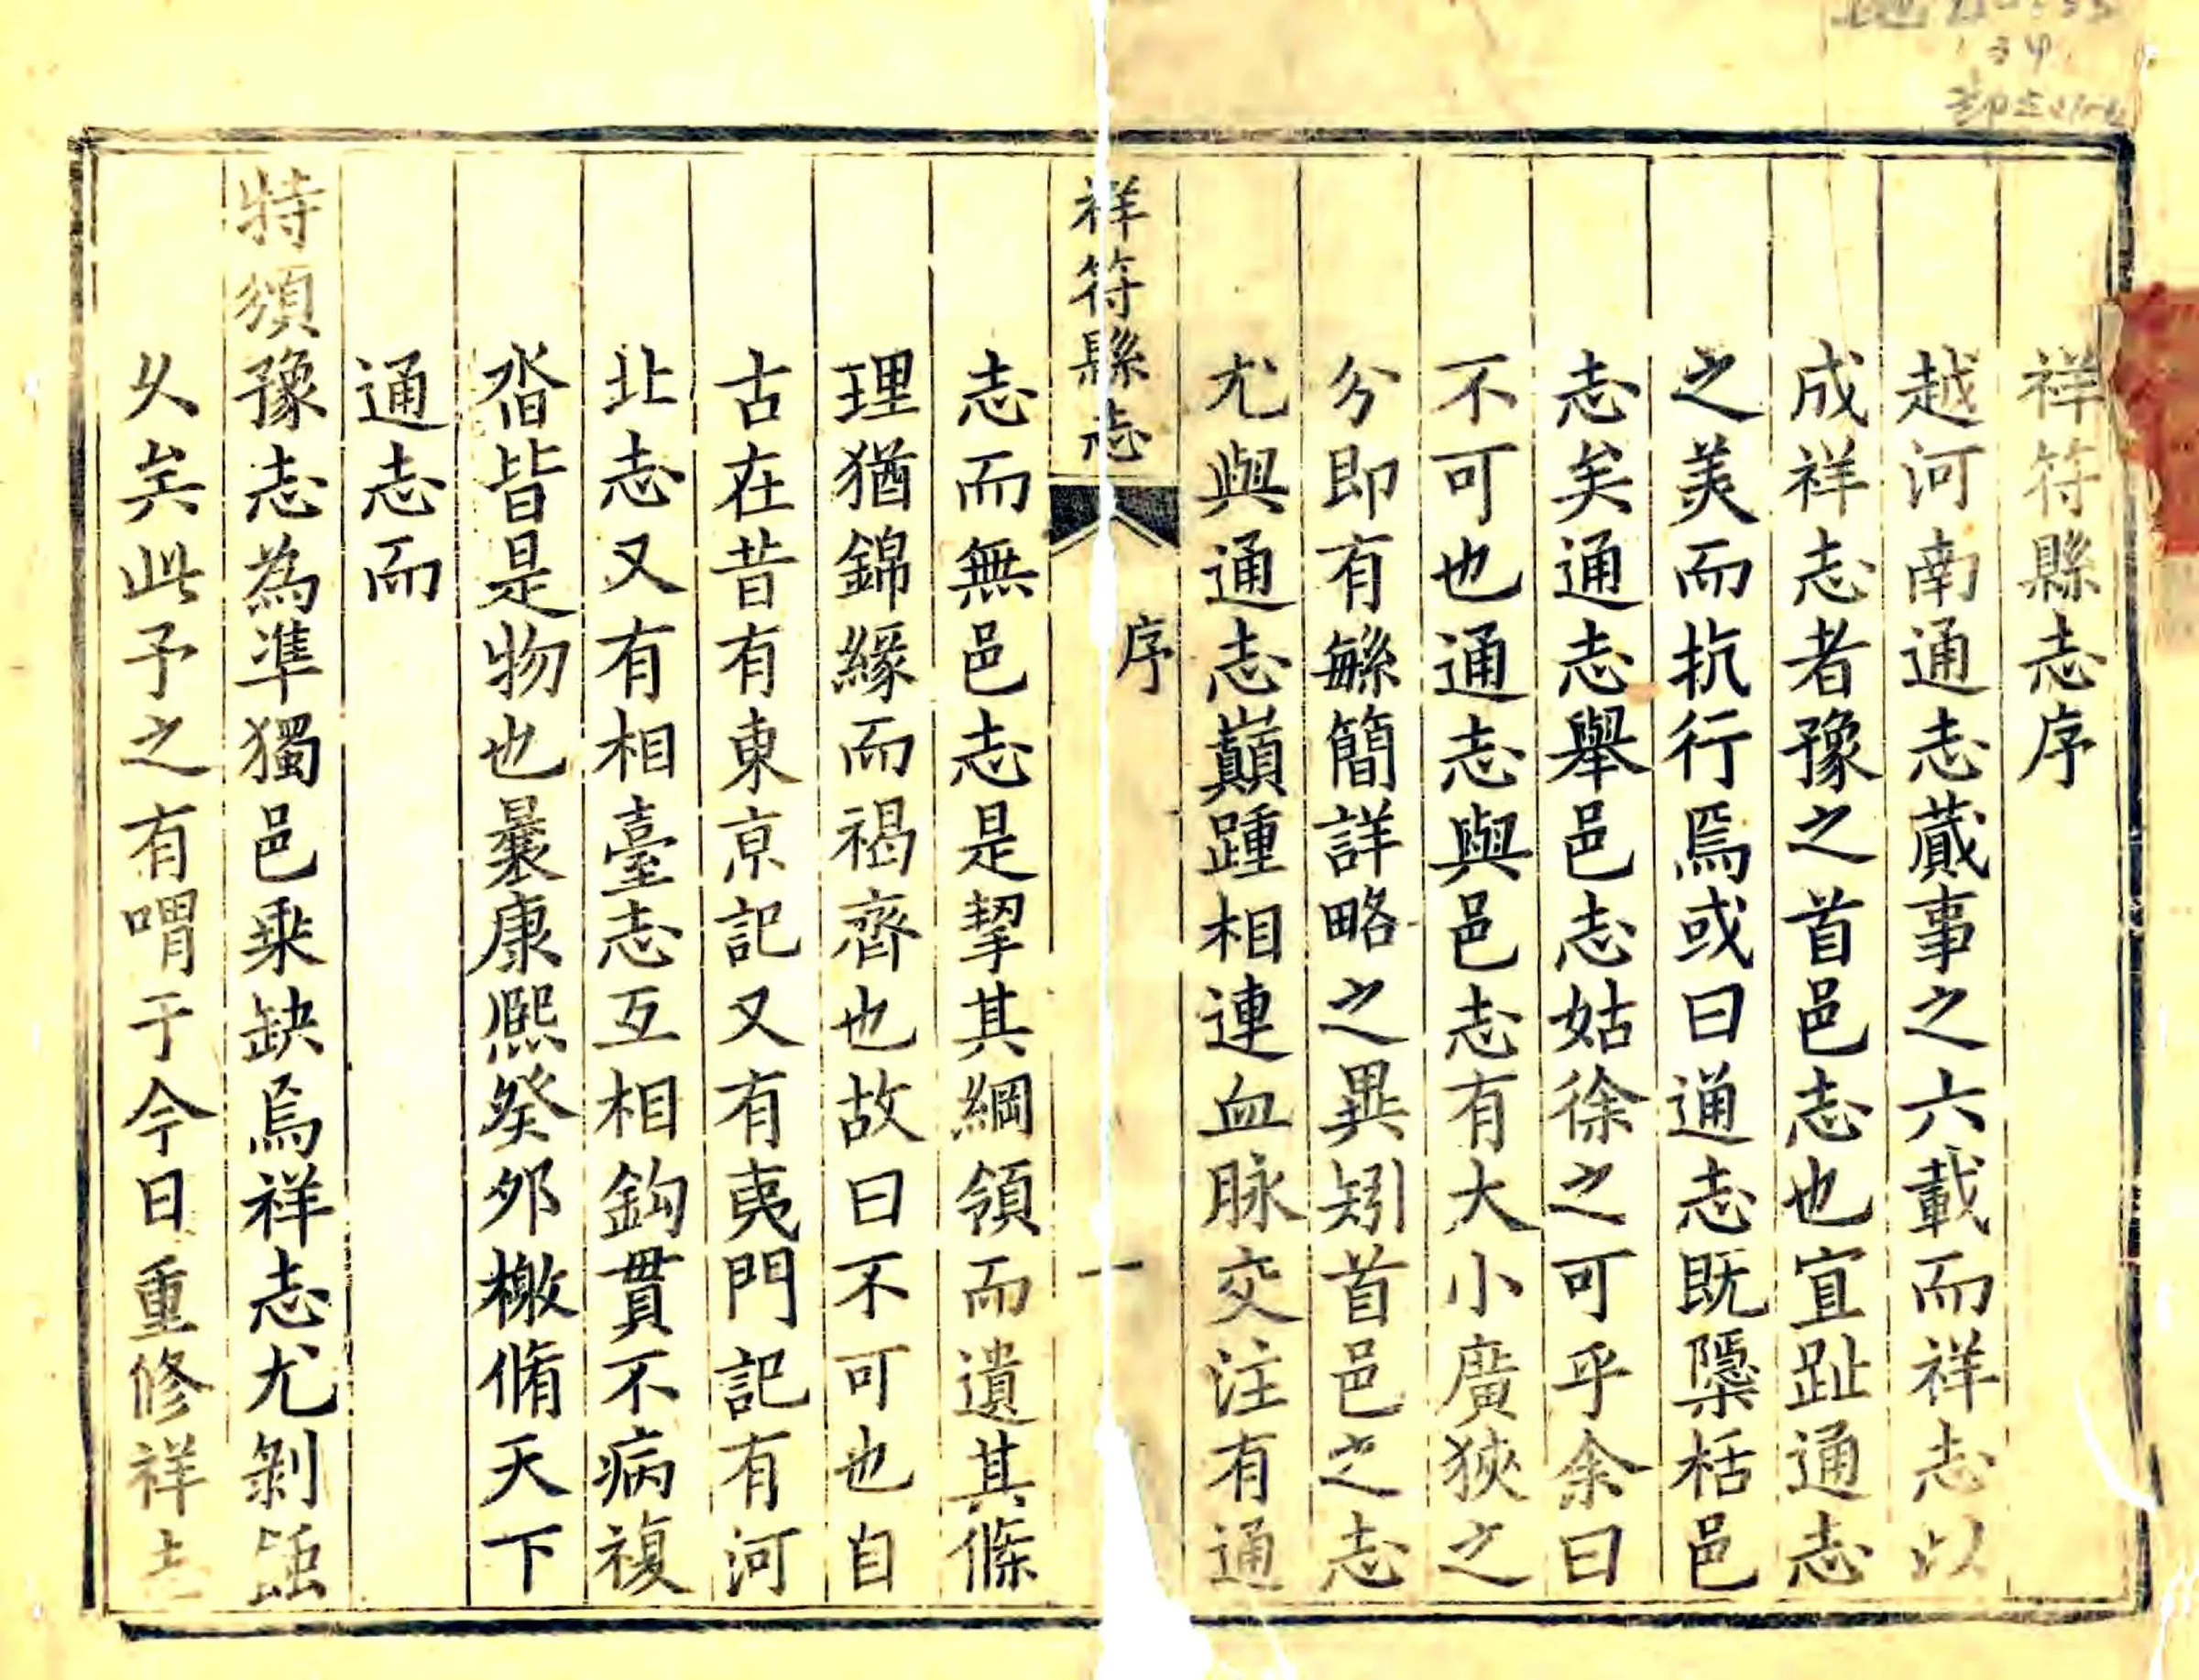 祥符縣志序
越河南通志蕆事之六載而祥志以
成祥志者豫之首邑志也宜趾通志
之美而抗行焉或曰通志既櫽栝邑
志矣通志舉邑志姑徐之可乎余曰
不可也通志與邑志有大小廣狹之
分即有緐簡詳略之異矧首邑之志
尤與通志巔踵相連血脉交注有通
祥符縣志 序 一
志而無邑志是挈其綱領而遺其條
理猶錦緣而褐齊也故曰不可也自
古在昔有東京記又有夷門記有河
北志又有相臺志互相鈎貫不病複
沓皆是物也曩康熙癸夘檄脩天下
通志而
特頒豫志為準獨邑乘缺焉祥志尤剝蝕
乆矣此予之有喟于今日重修祥志